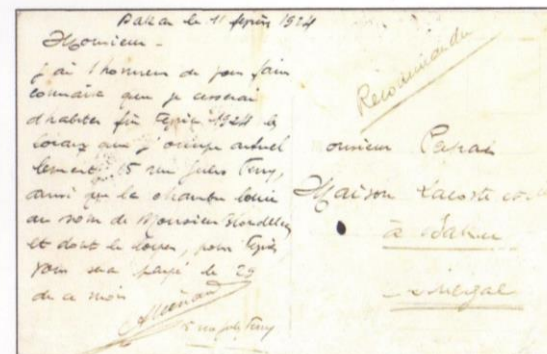 Dakar le 11 février 1924
Monsieur -
J'ai l'honneur de vous faire
connaître que je cesserai
d'habiter fin février 1924 les
locaux que j'occupe actuel
lement, 15 rue Jules Ferry,
ainsi que la chambre louée
au nom de Monsieur
et dont le loyer, pour février
vous sera payé le 29
de ce mois
rue Jules Ferry
Recommandée
onsieur
Maison Lacoste
à Dakar
Sénégal